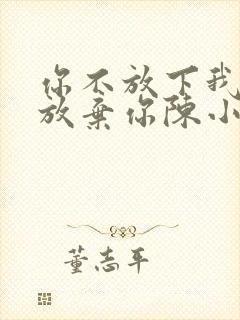 你不放下我
放弃你陈小
董志平